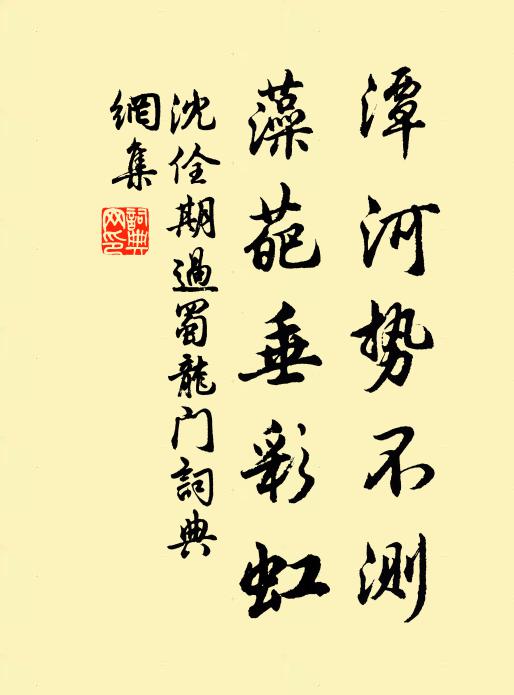 潭河势不测
藻葩垂彩虹
沈佺期過蜀龍门詞典
網集
詞典网印